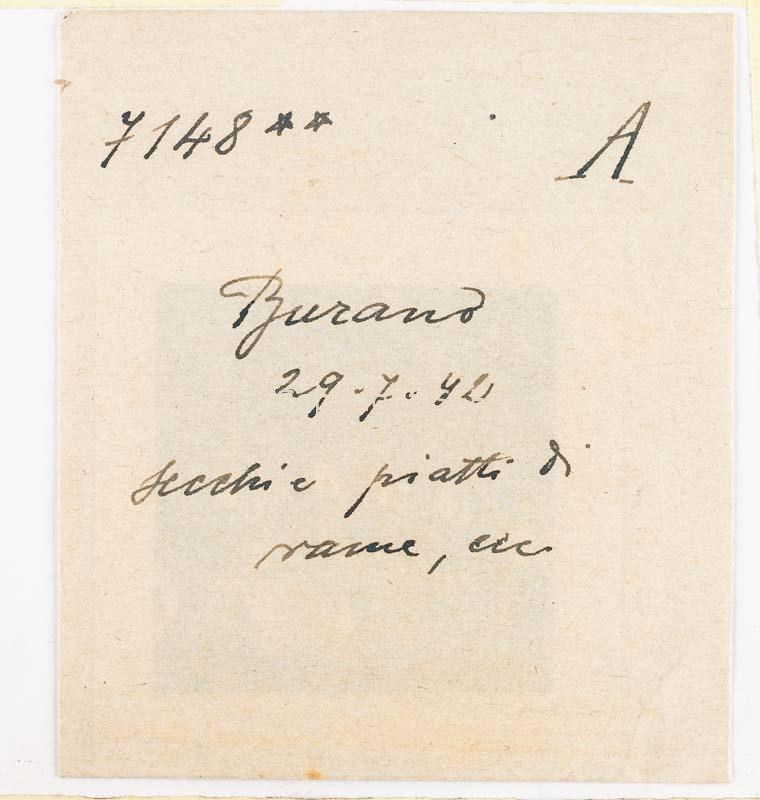 7148** A
Burano
29.7.42
secchi e piatti di
rame, ecc